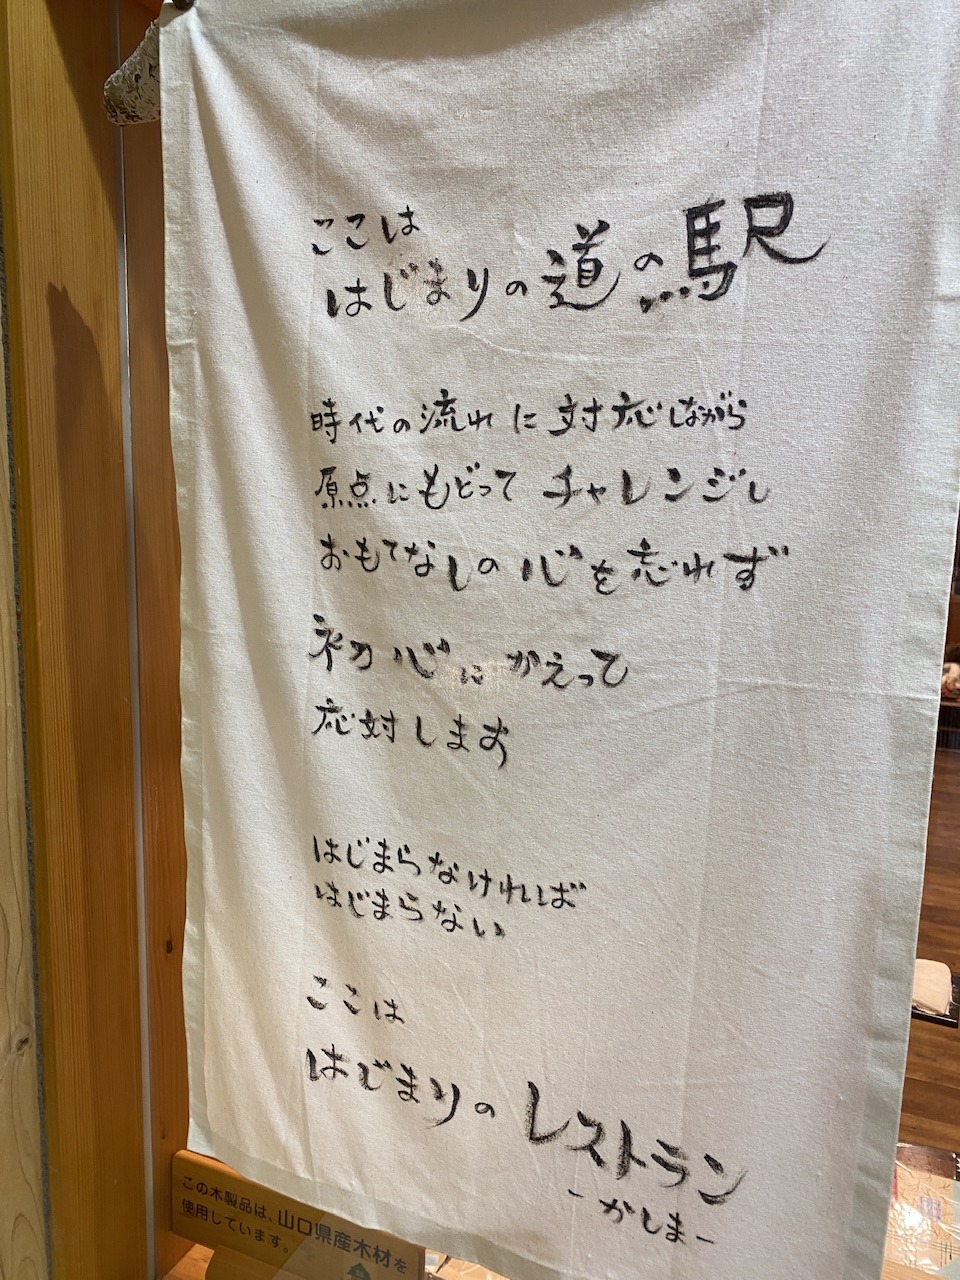 ここは
はじまりの道の駅
時代の流れに対応しながら
原点にもどってチャレンジし
おもてなしの心を忘れず
初心にかえって
応対します
はじまらなければ
はじまらない
ここは
はじまりのレストラン
-かしま-
この木製品は、山口県産木材を
使用しています。